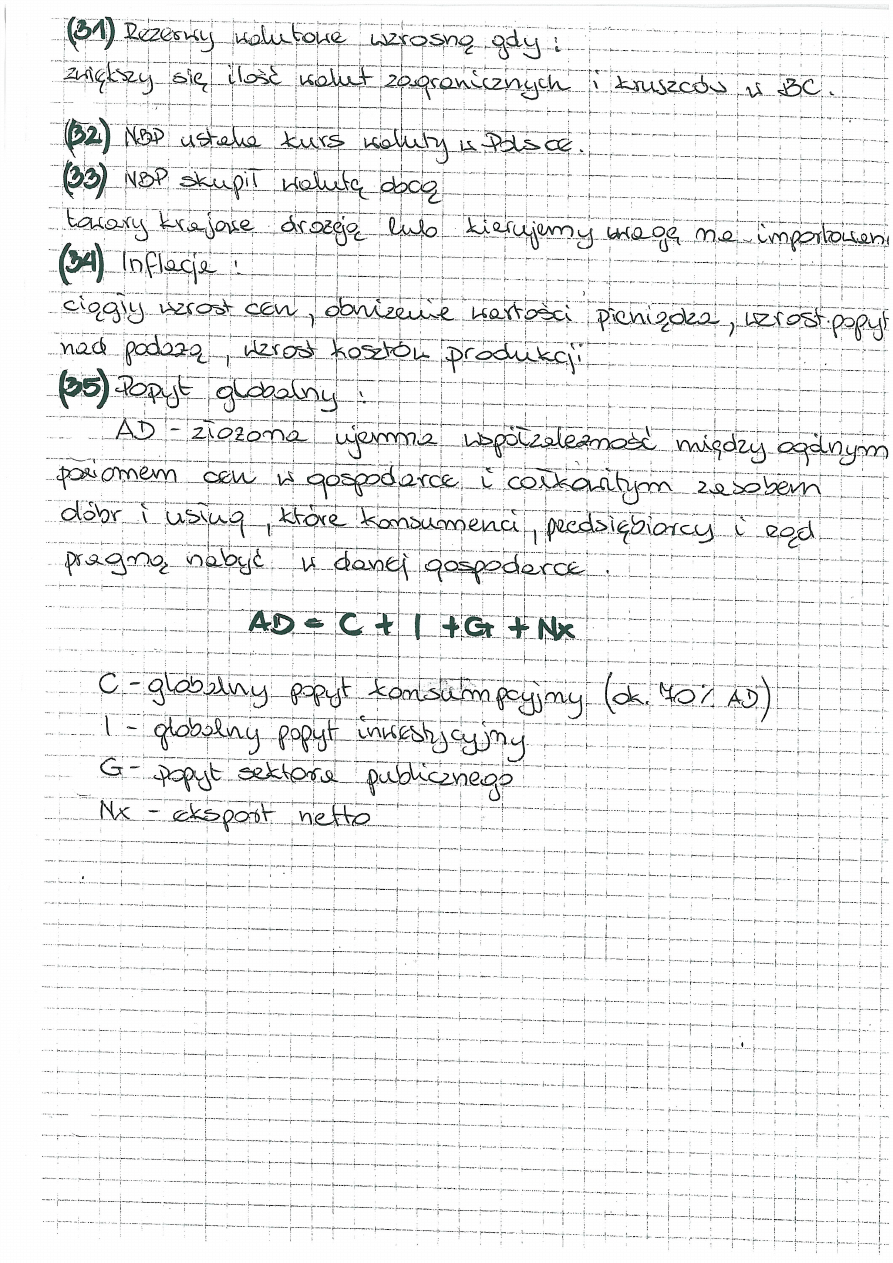 (31) Rezerwy walutowe wzrosną gdy:
zwiększy się ilość walut zagranicznych i kruszców w BC.
(32) NBP ustala kurs waluty w Polsce.
(33) NBP skupił walutę obcą
towary krajowe drożeją lub kierujemy uwagę na importowan
(34) Inflacja:
ciągły wzrost cen, obniżenie wartości pieniądza, wzrost popyt
nad podażą, wzrost kosztów produkcji
(35) Popyt globalny:
AD - złożona ujemna współzależność między ogólnym
poziomem cen w gospodarce i całkowitym zasobem
dóbr i usług, które konsumenci, przedsiębiorcy i rząd
pragną nabyć w danej gospodarce.
AD = C + I + G + Nx
C - globalny popyt konsumpcyjny (ok. 70% AD)
I - globalny popyt inwestycyjny
G - popyt sektora publicznego
Nx - eksport netto